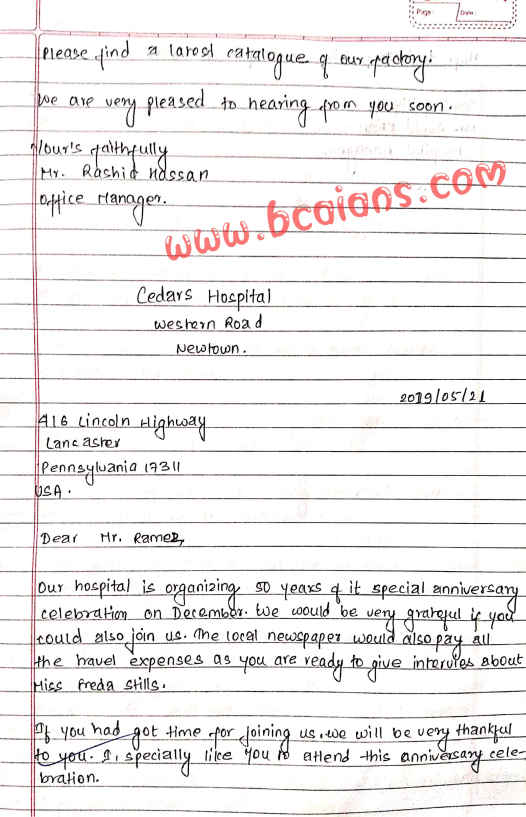 Page:
Date:
Please find a latest catalogue of our factory:
We are very pleased to hearing from you soon.
Your's faithfully
Mr. Rashid Hassan
Office Manager.
www.bcoions.com
Cedars Hospital
Western Road
Newtown.
2019/05/21
416 Lincoln Highway
Lancaster
Pennsylvania 17311
USA.
Dear Mr. Ramez,
Our hospital is organizing 50 years of it special anniversary
celebration on December. We would be very grateful if you
could also join us. The local newspaper would also pay all
the travel expenses as you are ready to give intervies about
Miss Freda Stills.
If you had got time for joining us, we will be very thankful
to you. I, specially like you to attend this anniversary cele-
bration.